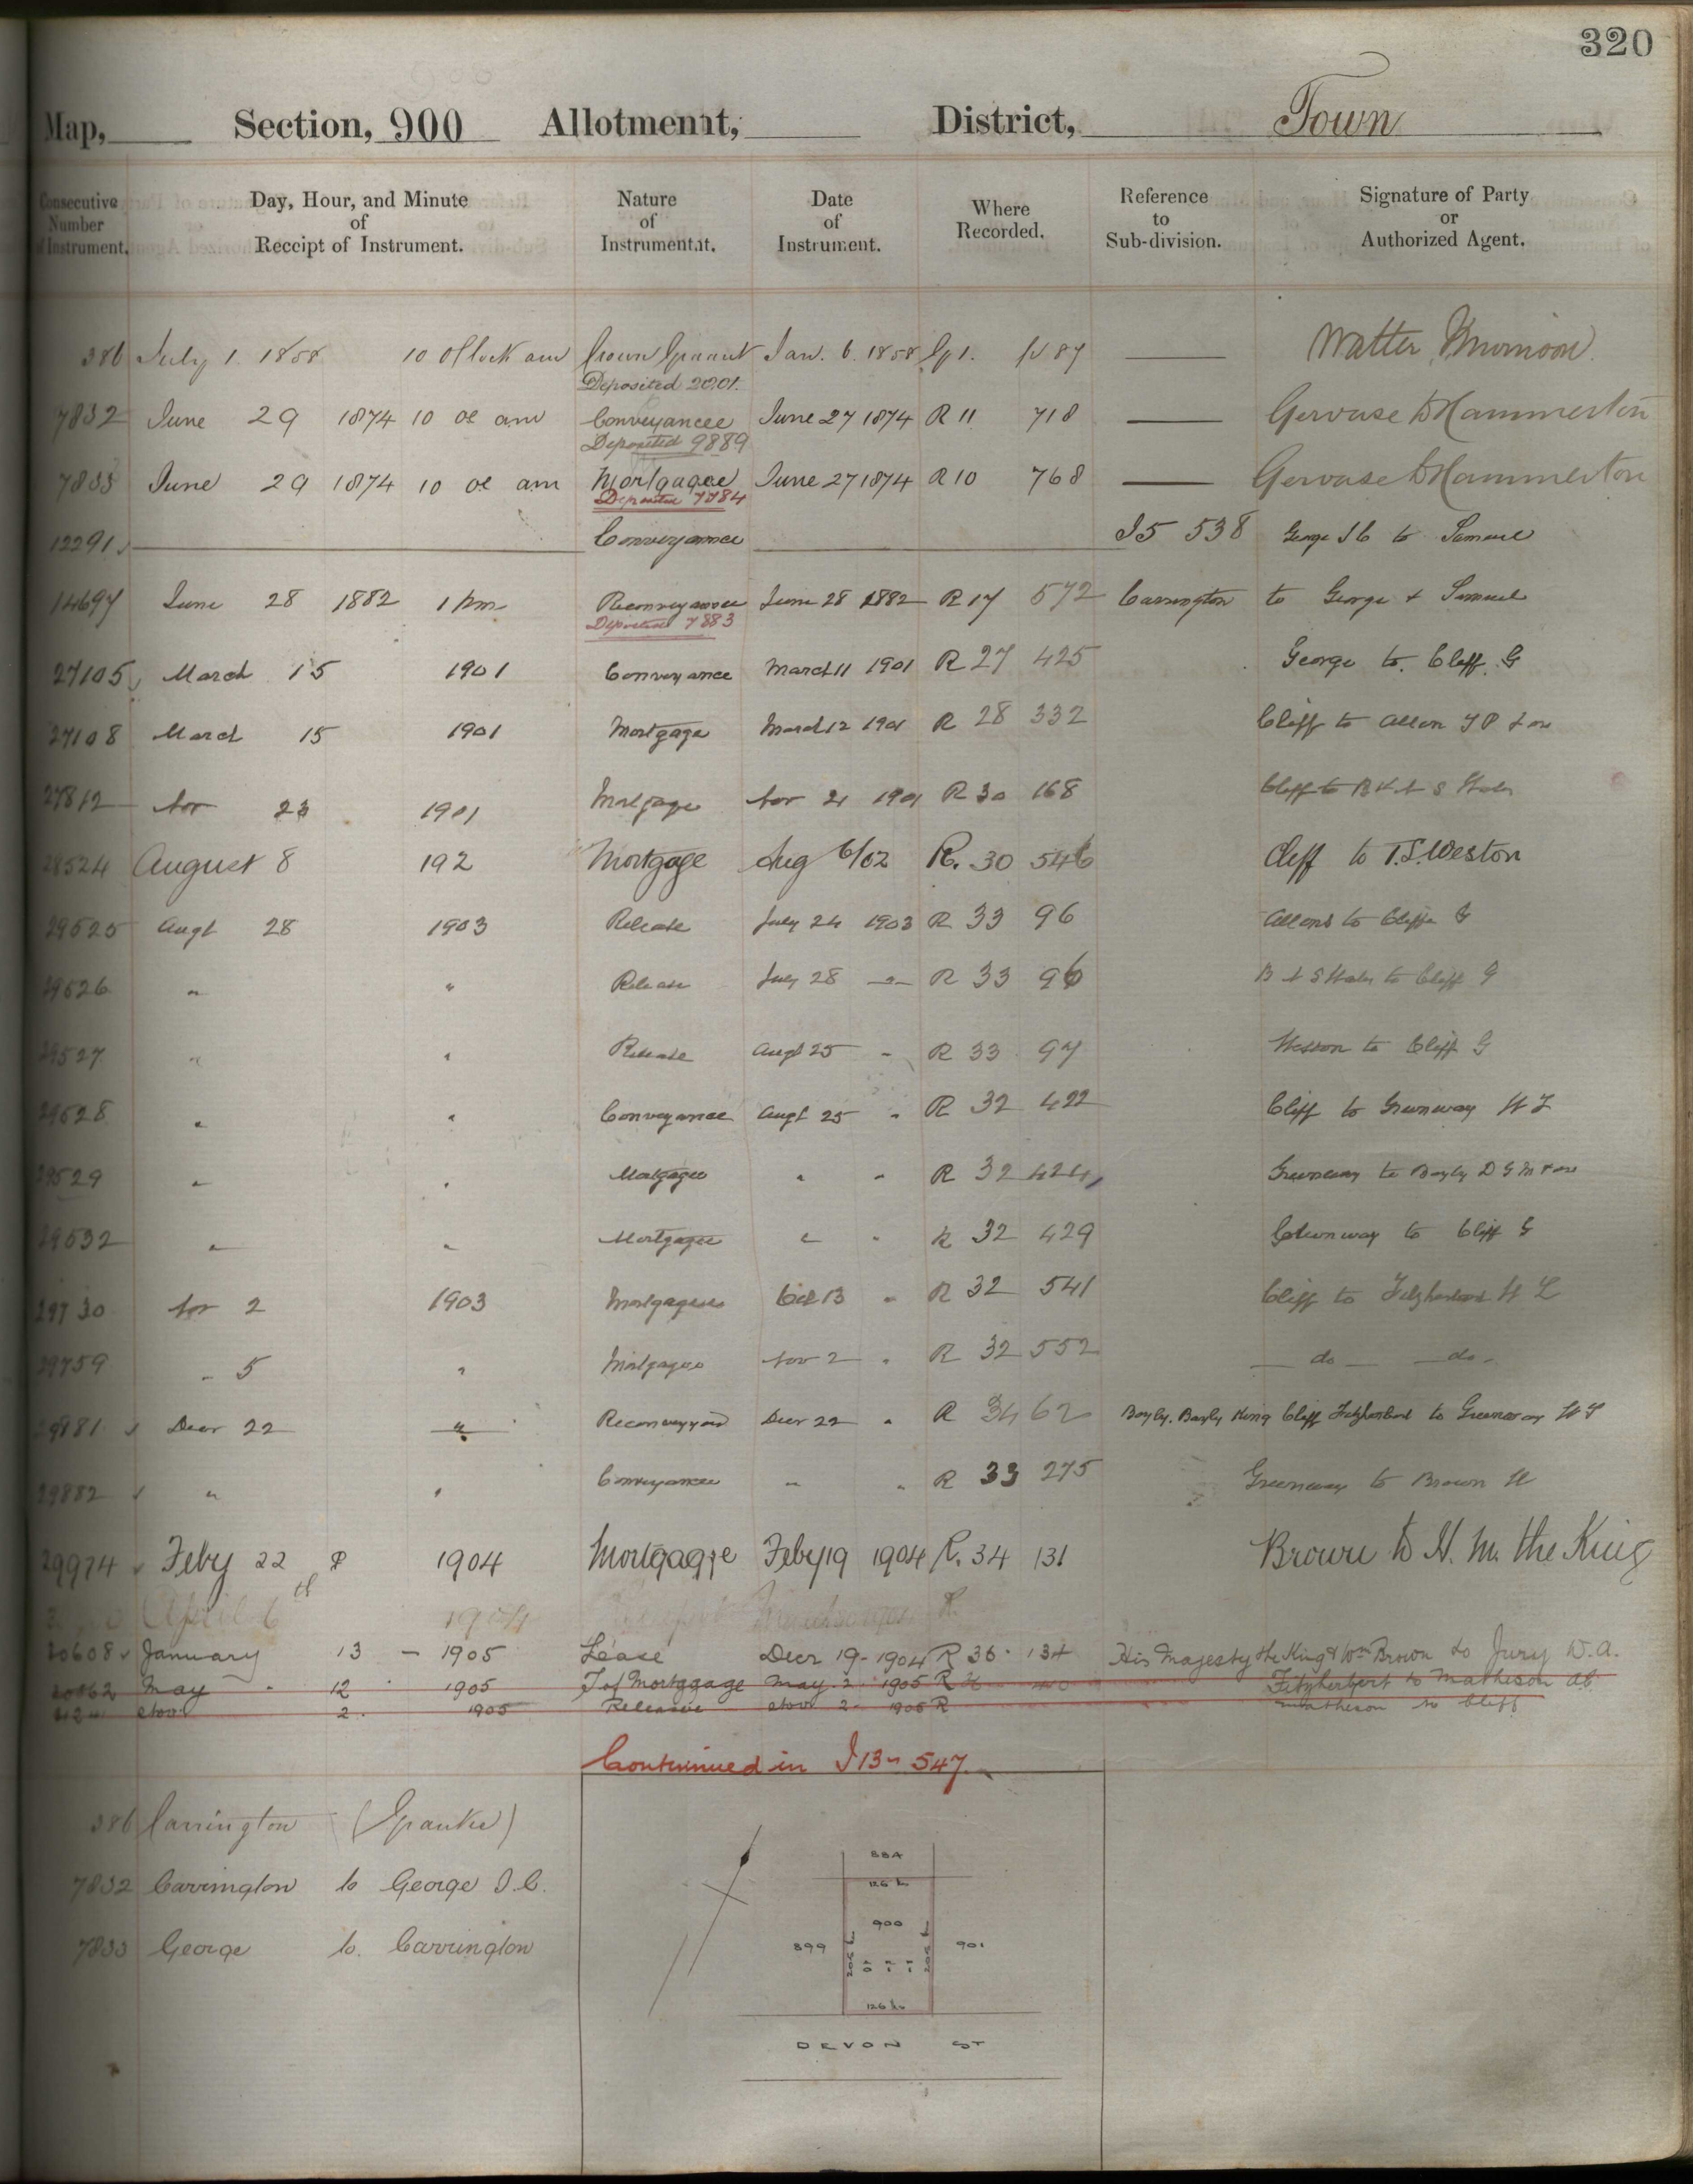 320
Map, Section, 900 Allotment, District, Town
Consecutive Number of Instrument.
Day, Hour, and Minute of Receipt of Instrument.
Nature of Instrument.
Date of Instrument.
Where Recorded.
Reference to Sub-division.
Signature of Party or Authorized Agent.
386 July 1. 1858 10 O'Clock am Crown Graunt Jan. 6. 1858 G 1. p 87 Walter
Deposited 2001.
7832 June 29 1874 10 oc am Conveyance June 27 1874 R 11 718 Gervase D Hammerton
Deposited 9889
7833 June 29 1874 10 oc am Mortgage June 27 1874 R 10 768 Gervase D Hammerton
Deposited 7784
12291 Conveyance I5 538 George J C to Samuel
14697 June 28 1882 1 pm Reconveyance June 28 1882 R 17 572 Carrington to George & Samuel
Deposited 7883
27105 March 15 1901 Conveyance March 11 1901 R 27 425 George to Cliff G
27108 March 15 1901 Mortgage March 12 1901 R 28 332 Cliff to Allen
27812 Nov 23 1901 Mortgage Nov 21 1901 R 30 168 Cliff to
28524 August 8 192 Mortgage Aug 6/02 R. 30 546 Cliff to T.S. Weston
29525 Augt 28 1903 Release July 24 1903 R 33 96 to Cliff G
29526 " " Release July 28 R 33 96 to Cliff G
29527 " " Release Augt 25 " R 33 97 Weston to Cliff G
29528 " " Conveyance Augt 25 " R 32 422 Cliff to Greenway
29529 " " Mortgage " " R 32 424 Greenway to Bayly D G M
29532 " " Mortgage " " R 32 429 Greenway to Cliff G
29730 Nov 2 1903 Mortgage Oct 13 " R 32 541 Cliff to Fitzherbert
29759 " 5 " Mortgage Nov 2 " R 32 552 — do — — do —
29881 Decr 22 " Decr 22 " R 34 62 Bayly, Bayly King Cliff Fitzherbert to Greenway
29882 " " Conveyance " " R 33 275 Greenway to Brown
29974 Feby 22 1904 Mortgage Feby 19 1904 R. 34 131 Brown to H. M. the King
April 6th 1904
30608 January 13 - 1905 Lease Decr 19 - 1904 R 36 134 His Majesty the King & Wm Brown to Jury W.A.
May 12 1905 T of Mortgage May 2 1905 R Fitzherbert to Matheson
Nov 2 1905 Release Nov 2 1905 R Matheson to Cliff
Continued in I 13 - 547
386 Carrington (Grantee)
7832 Carrington to George J. C.
7833 George to Carrington
88A
126 L
900
899
901
205 L
205 L
126 L
DEVON ST